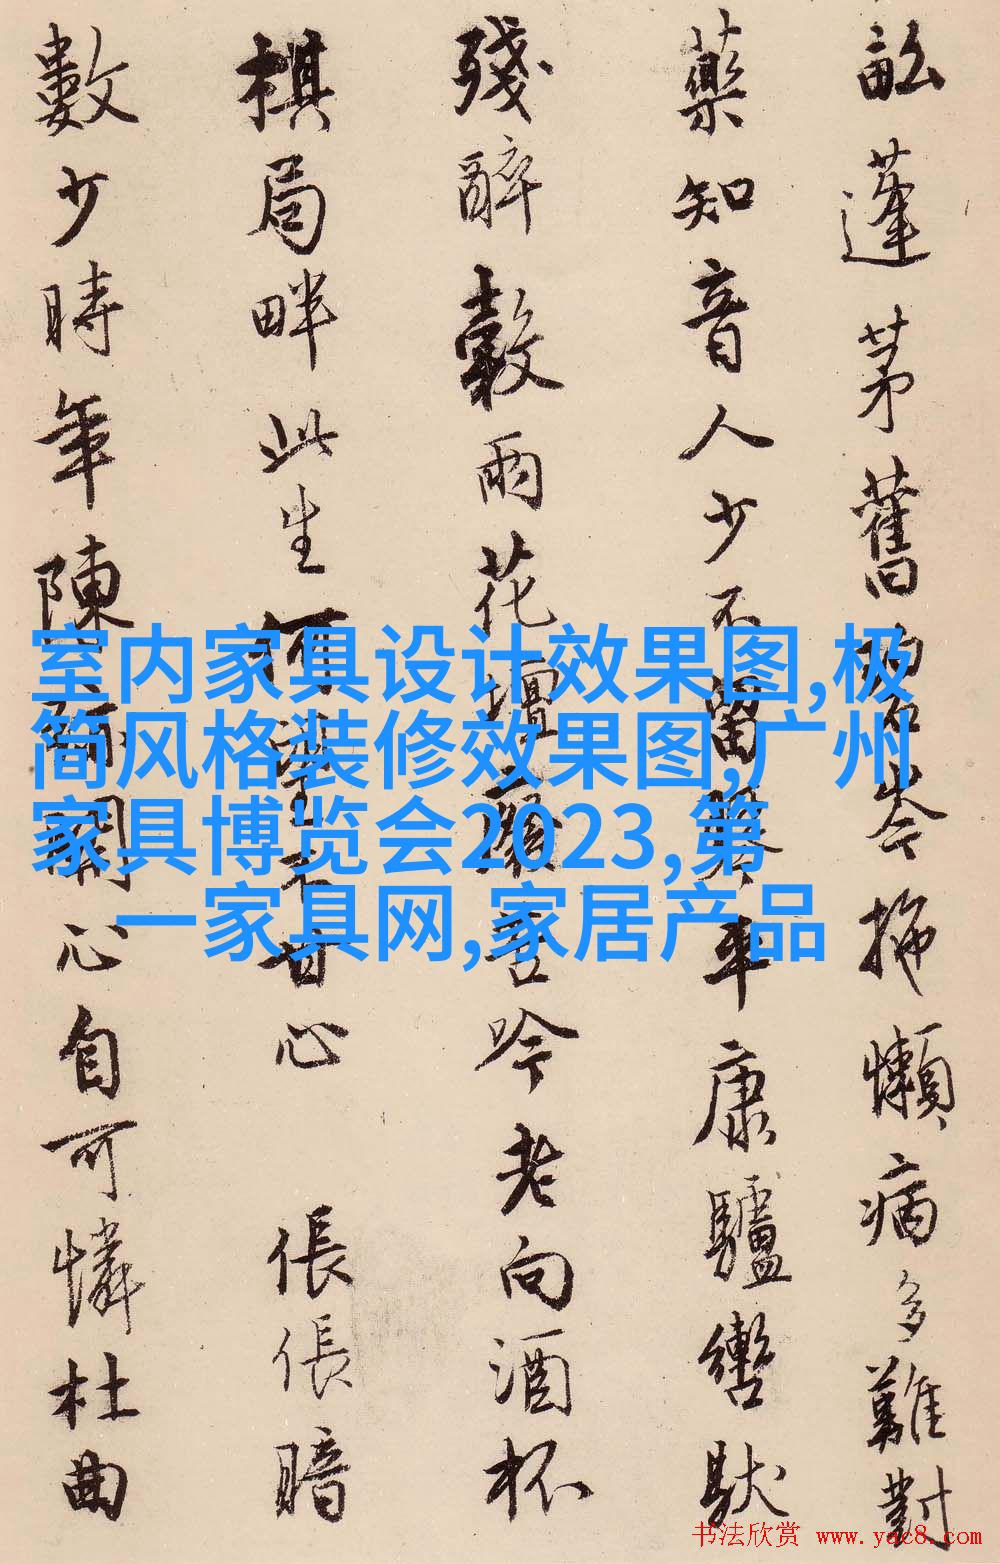 畝蓬茅舊碧岑拖懶病多難對
藥知音人少不留琴平康驢轡馱
殘醉穀雨花壇吟老向酒杯
棋局畔此生何望不甘心 悵悵暗
數少時年陳跡關心自可憐杜曲
室内家具设计效果图,极
简风格装修效果图,广州
家具博览会2023,第
一家具网,家居产品
书法欣赏 www.yac8.com